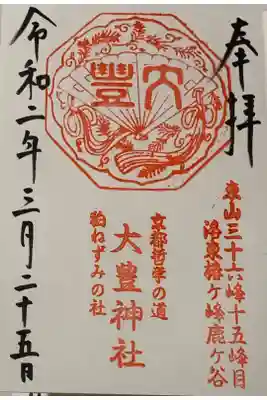 奉拝
東山三十六峰十五峰目
洛東椿ケ峰鹿ケ谷
大豐
京都哲学の道
大豊神社
狛ねずみの社
令和二年三月二十五日